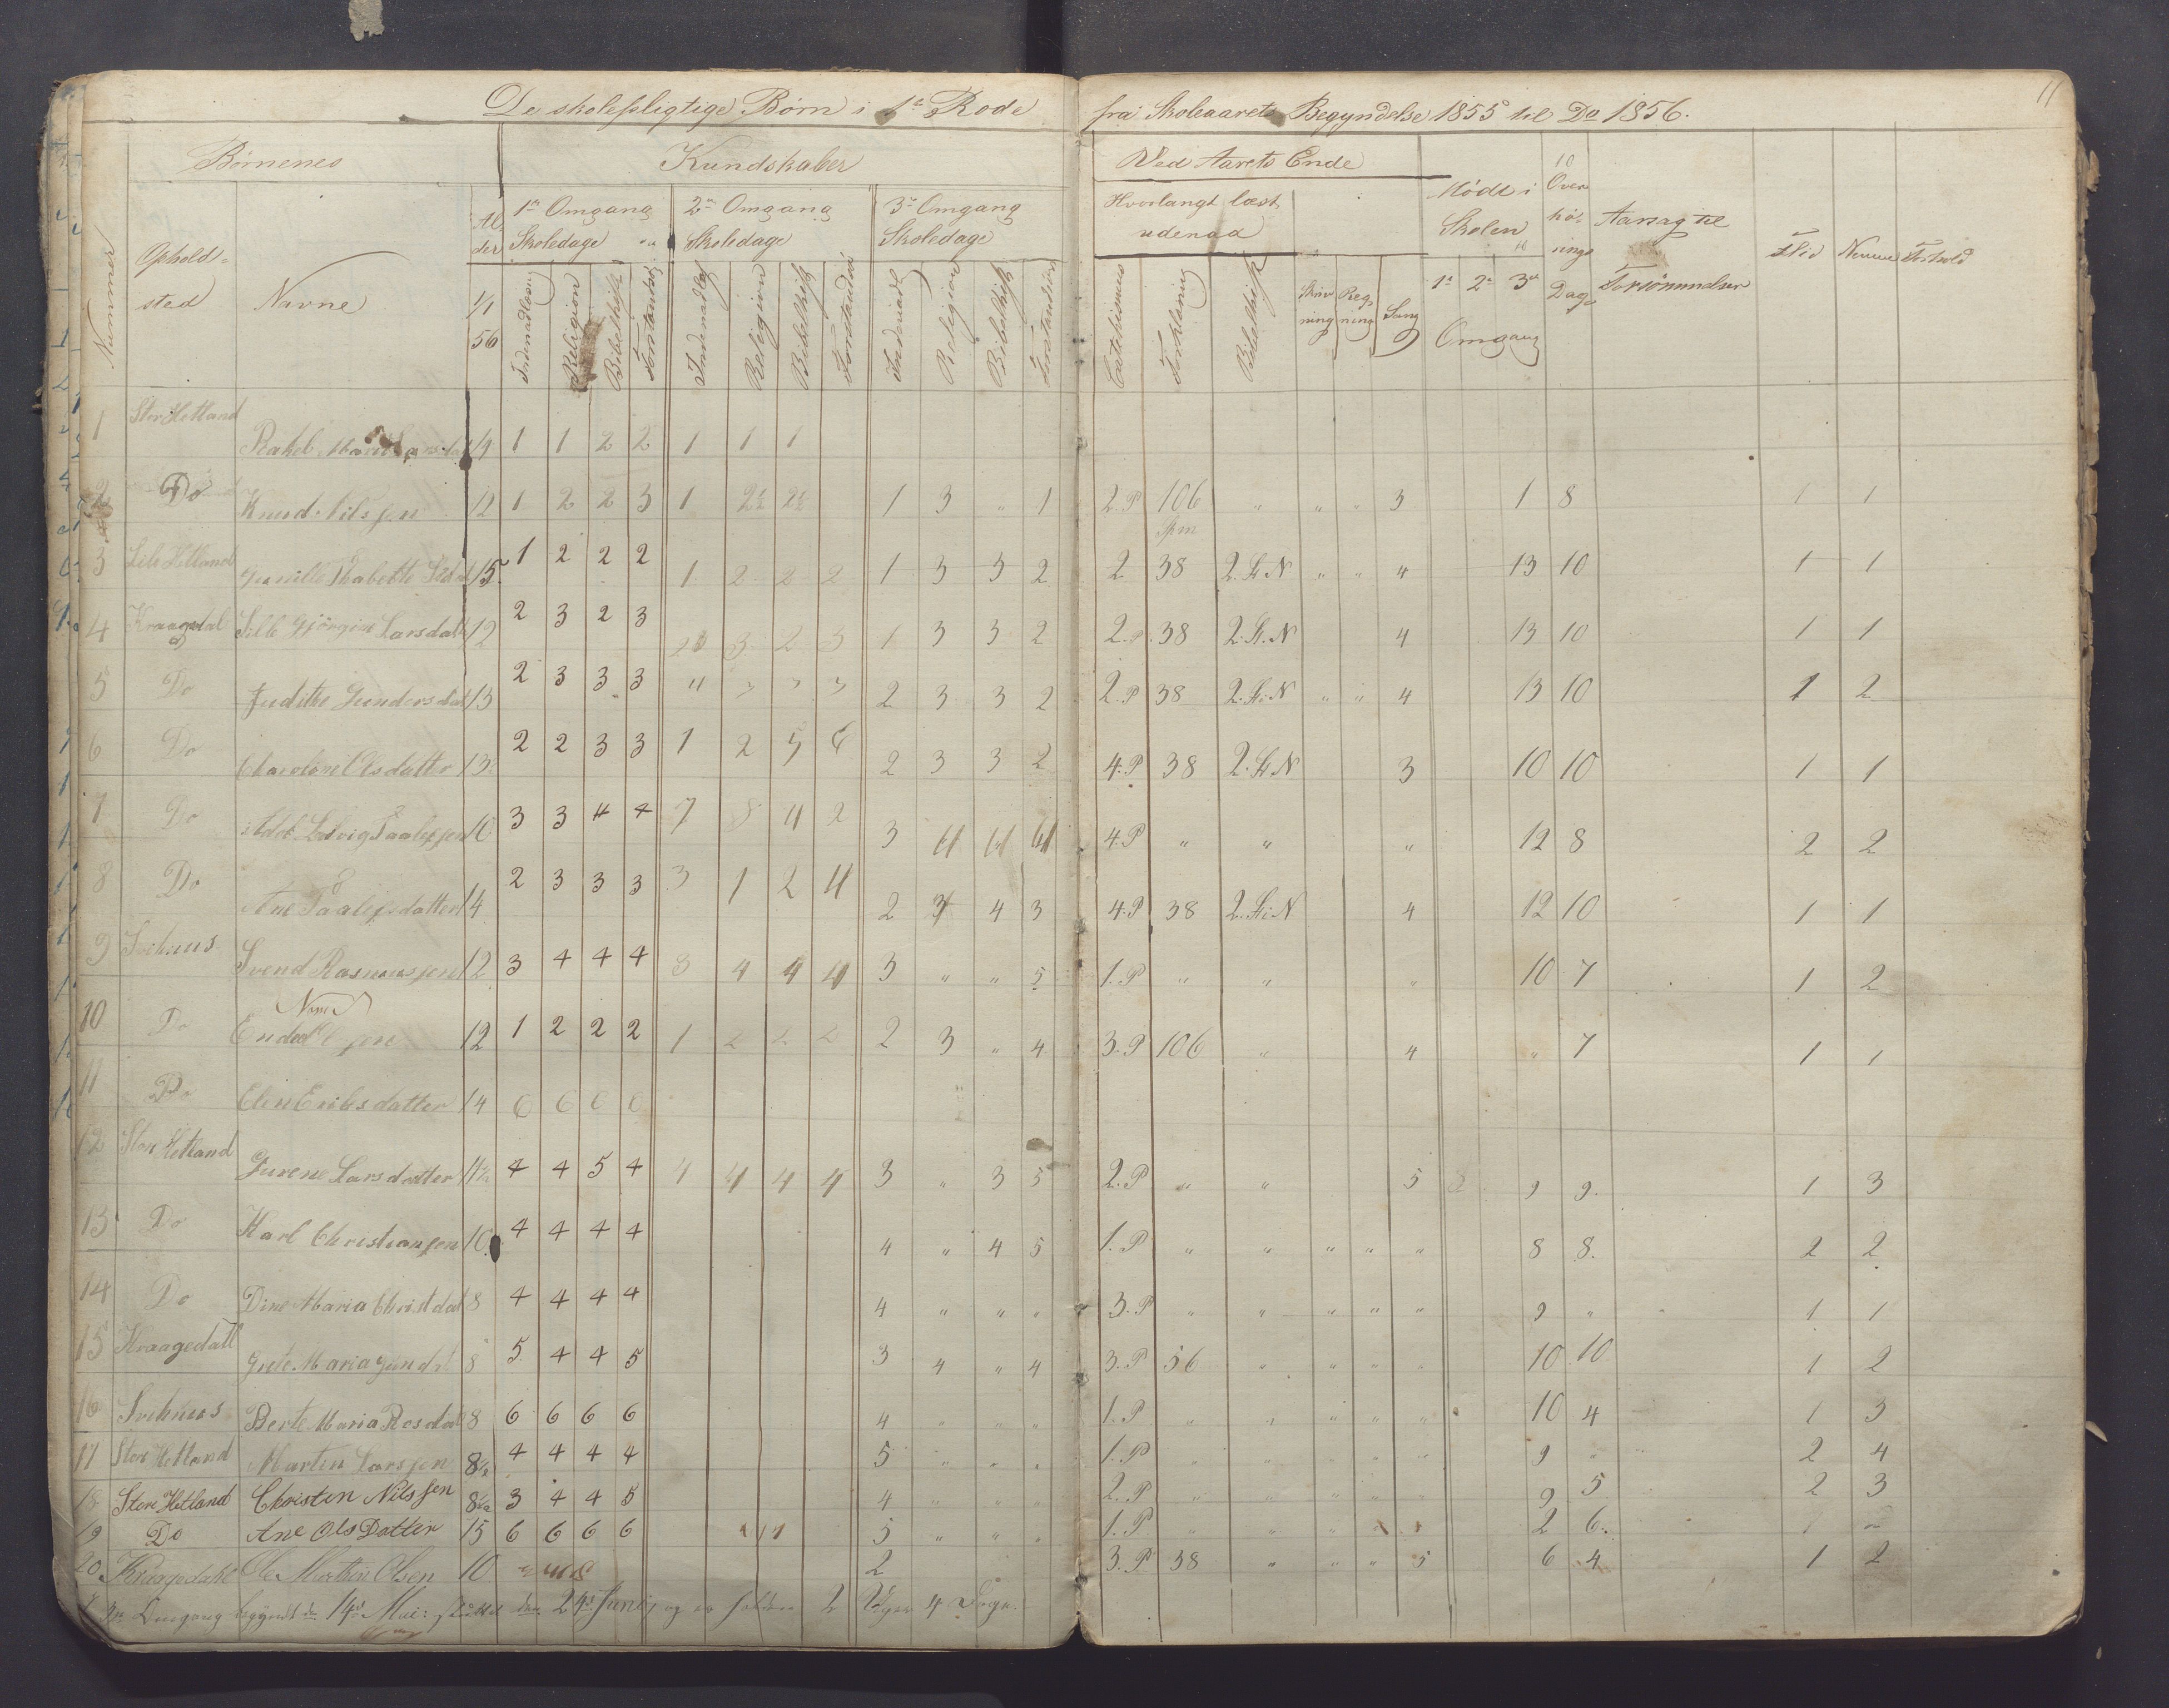 De skolepligtige Børn i 1ste Rode fra Skoleaarets Begyndelse 1855 til Do 1856.
11
Børnenes Kundskaber Ved Aarets Ende
Nummer Opholdsted Navne Alder 1/1 56
1ste Omgang Skoledage 2den Omgang Skoledage 3die Omgang Skoledage
Hvorlangt læst udenad
Indenadlæsning Religion Bibelhist Forstandsø
Indenadlæs Religion Bibelhist Forstandsø
Indenadl Religion Bibelhist Forstandsøv
Catechismus Forklaring Bibelhist Skrivning Regning Sang
Mødt i Skolen 1ste 2den 3die Omgang
Overhørings Dage
Aarsag til Forsømmelser
Flid Nemme Forhold
1 Store Hetland Rakel Larsdat 14 1 1 2 2 1 1 1
2 Do Knud Nilssen 12 1 2 2 3 1 2½ 2½ 1 3 " 1 2.P 106 " " " 3 1 8 1 1
Spm
3 Lile Hetland 15 1 2 2 2 1 2 2 2 1 3 3 2 2 38 2.St.N " " 4 13 10 1 1
4 Kraagedal Sille Gjörgine Larsdat 12 2 3 2 3 3 2 3 1 3 3 2 2.P. 38 2.St.N 4 13 10 1 1
5 Do Judithe Gundersdat 13 2 3 3 3 4 3 3 3 2 3 3 2 2.P 38 2.St.N " " 4 13 10 1 2
6 Do Caroline Olsdatter 13 2 2 3 3 1 2 5 6 2 3 3 2 4.P 38 2.St.N 3 10 10 1 1
7 Do Ludvig Paalssen 10 3 3 4 4 7 8 4 2 3 4 4 4.P " " " 12 8 2 2
8 Do Ane Paalsdatter 14 2 3 3 3 3 1 2 4 2 3 4 3 4.P 38 2.St.N 4 12 10 1 1
9 Svihuus Svend Rasmussen 12 3 4 4 4 3 4 4 4 3 " " 5 1.P " " " 10 7 1 2
10 Do 12 1 2 2 2 1 2 2 2 2 3 " 4 3.P 106 " 4 " 7 1 1
11 Do Elen Eriksdatter 14 6 6 6 6
12 Store Hetland Jurene Larsdatter 11½ 4 4 5 4 4 4 4 4 3 " 3 5 2.P " " 5 9 9. 1 3
13 Do Karl Christiansen 10 4 4 4 4 4 " 4 5 1.P " " " " " 8 8. 2 2
14 Do Dine Maria Christdat 8 4 4 4 4 4 " " " 3.P " " " " " 9 " 1 1
15 Kraagedall Maria Gundt 8 5 4 4 5 3 4 " 4 3.P 56 " " " " 10 10 1 2
16 Svihuus Berte Maria Rasdat 8 6 6 6 6 4 " " " 1.P " " " " " 10 4 1 3
17 Store Hetland Martin Larssen 8½ 4 4 4 4 5 " " " 1.P " " " " " 9 " 2 4
18 Store Hetland Christen Nilssen 8½ 3 4 4 5 4 " " " 2.P " " " " " 9 5 2 3
19 Do Ane Ols Datter 15 6 6 6 6 5 " " " 1.P " " " 2 6.
20 Kraagedahl Ole Martin Olsen 10 2 3.P 38 " " " 5 6 4 1 2
Omgang begyndt den 14de Mai: sluttet den 24de Juni, og er holden 2 Uger 4 Dage.